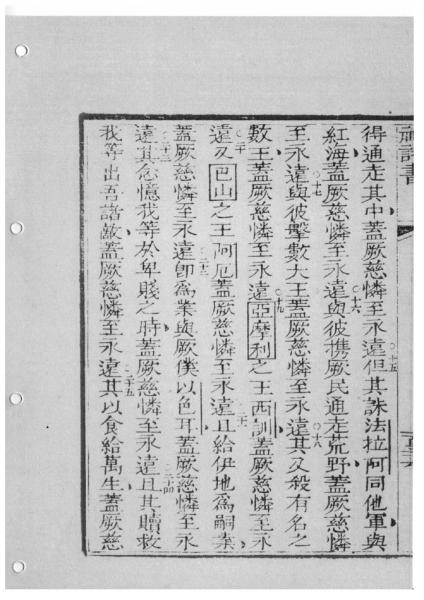 神詩書
得通走其中蓋厥慈憐至永遠十五但其誅法拉阿同他軍與
紅海蓋厥慈憐至永遠十六與彼携厥民通走荒野蓋厥慈憐
至永遠十七與彼擊數大王蓋厥慈憐至永遠十八其又殺有名之
數王蓋厥慈憐至永遠十九亞摩利之王西訓蓋厥慈憐至永
遠二十又巴山之王阿厄蓋厥慈憐至永遠二十一且給伊地爲嗣業
蓋厥慈憐至永遠二十二卽爲業與厥僕以色耳蓋厥慈憐至永
遠二十三其念憶我等於卑賤之時蓋厥慈憐至永遠二十四且其贖救
我等出吾諸敵蓋厥慈憐至永遠二十五其以食給萬生蓋厥慈